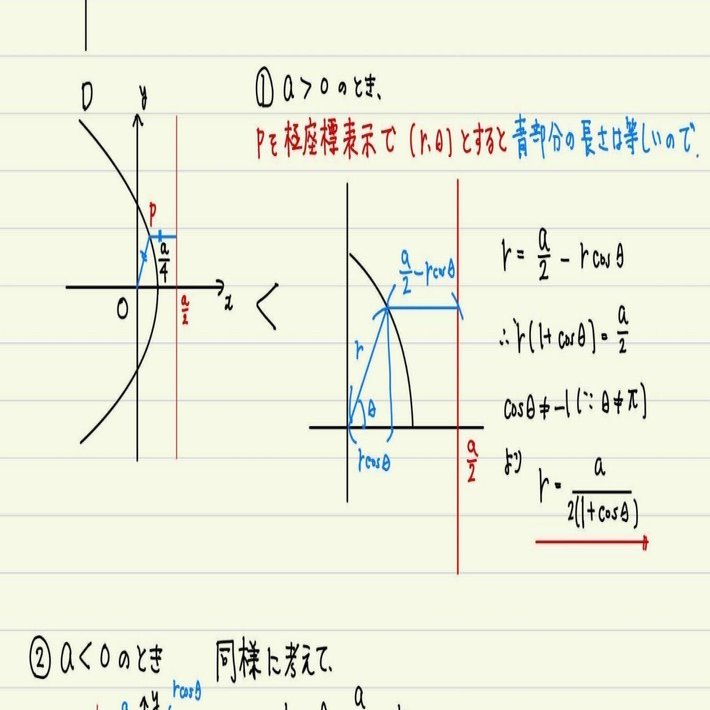 ① a>0のとき、
Pを極座標表示で (r,θ)とすると 青部分の長さは等しいので、
D
y
P
a/4
O
x
a/2
a/2 - rcosθ
r
θ
rcosθ
a/2
r = a/2 - rcosθ
∴ r(1+cosθ) = a/2
cosθ ≠ -1 (∵ θ ≠ π)
より
r = a/2(1+cosθ)
② a<0のとき 同様に考えて、
y
rcosθ
a